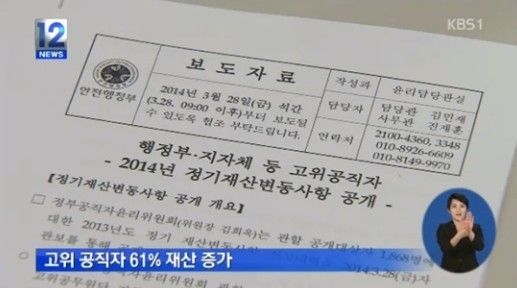 12
NEWS
KBS1
보 도 자 료
안전행정부
2014년 3월 28일(금) 석간
(3.28. 09:00 이후)부터 보도될
수 있도록 협조 부탁드립니다.
작성과 윤리담당관실
담당자 담당관 김민재
사무관 진재훈
연락처 2100-4360, 3348
010-8926-6609
010-8149-9970
행정부·지자체 등 고위공직자
- 2014년 정기재산변동사항 공개 -
[정기재산변동사항 공개 개요]
□ 정부공직자윤리위원회(위원장 김희옥)는 관할 공개대상자 1,868명에
대한 2013년도 정기 재산변동
관보를 통해 2014.3.28(금)자
고위 공직자 61% 재산 증가